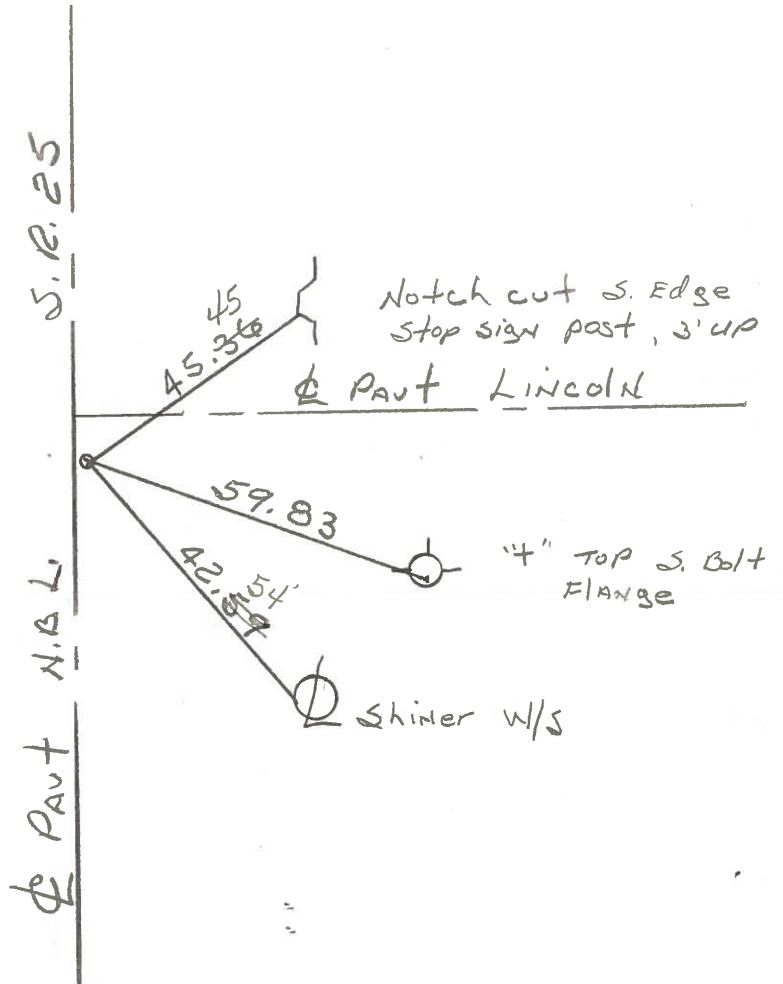 S.R. 25
45
45.36
Notch cut S. Edge
Stop sign post, 3' up
℄ PAVt LINCOLN
59.83
"+" TOP S. Bolt
FLANGE
42.
54'
Shiner W/S
℄ PAVt N.B.L.